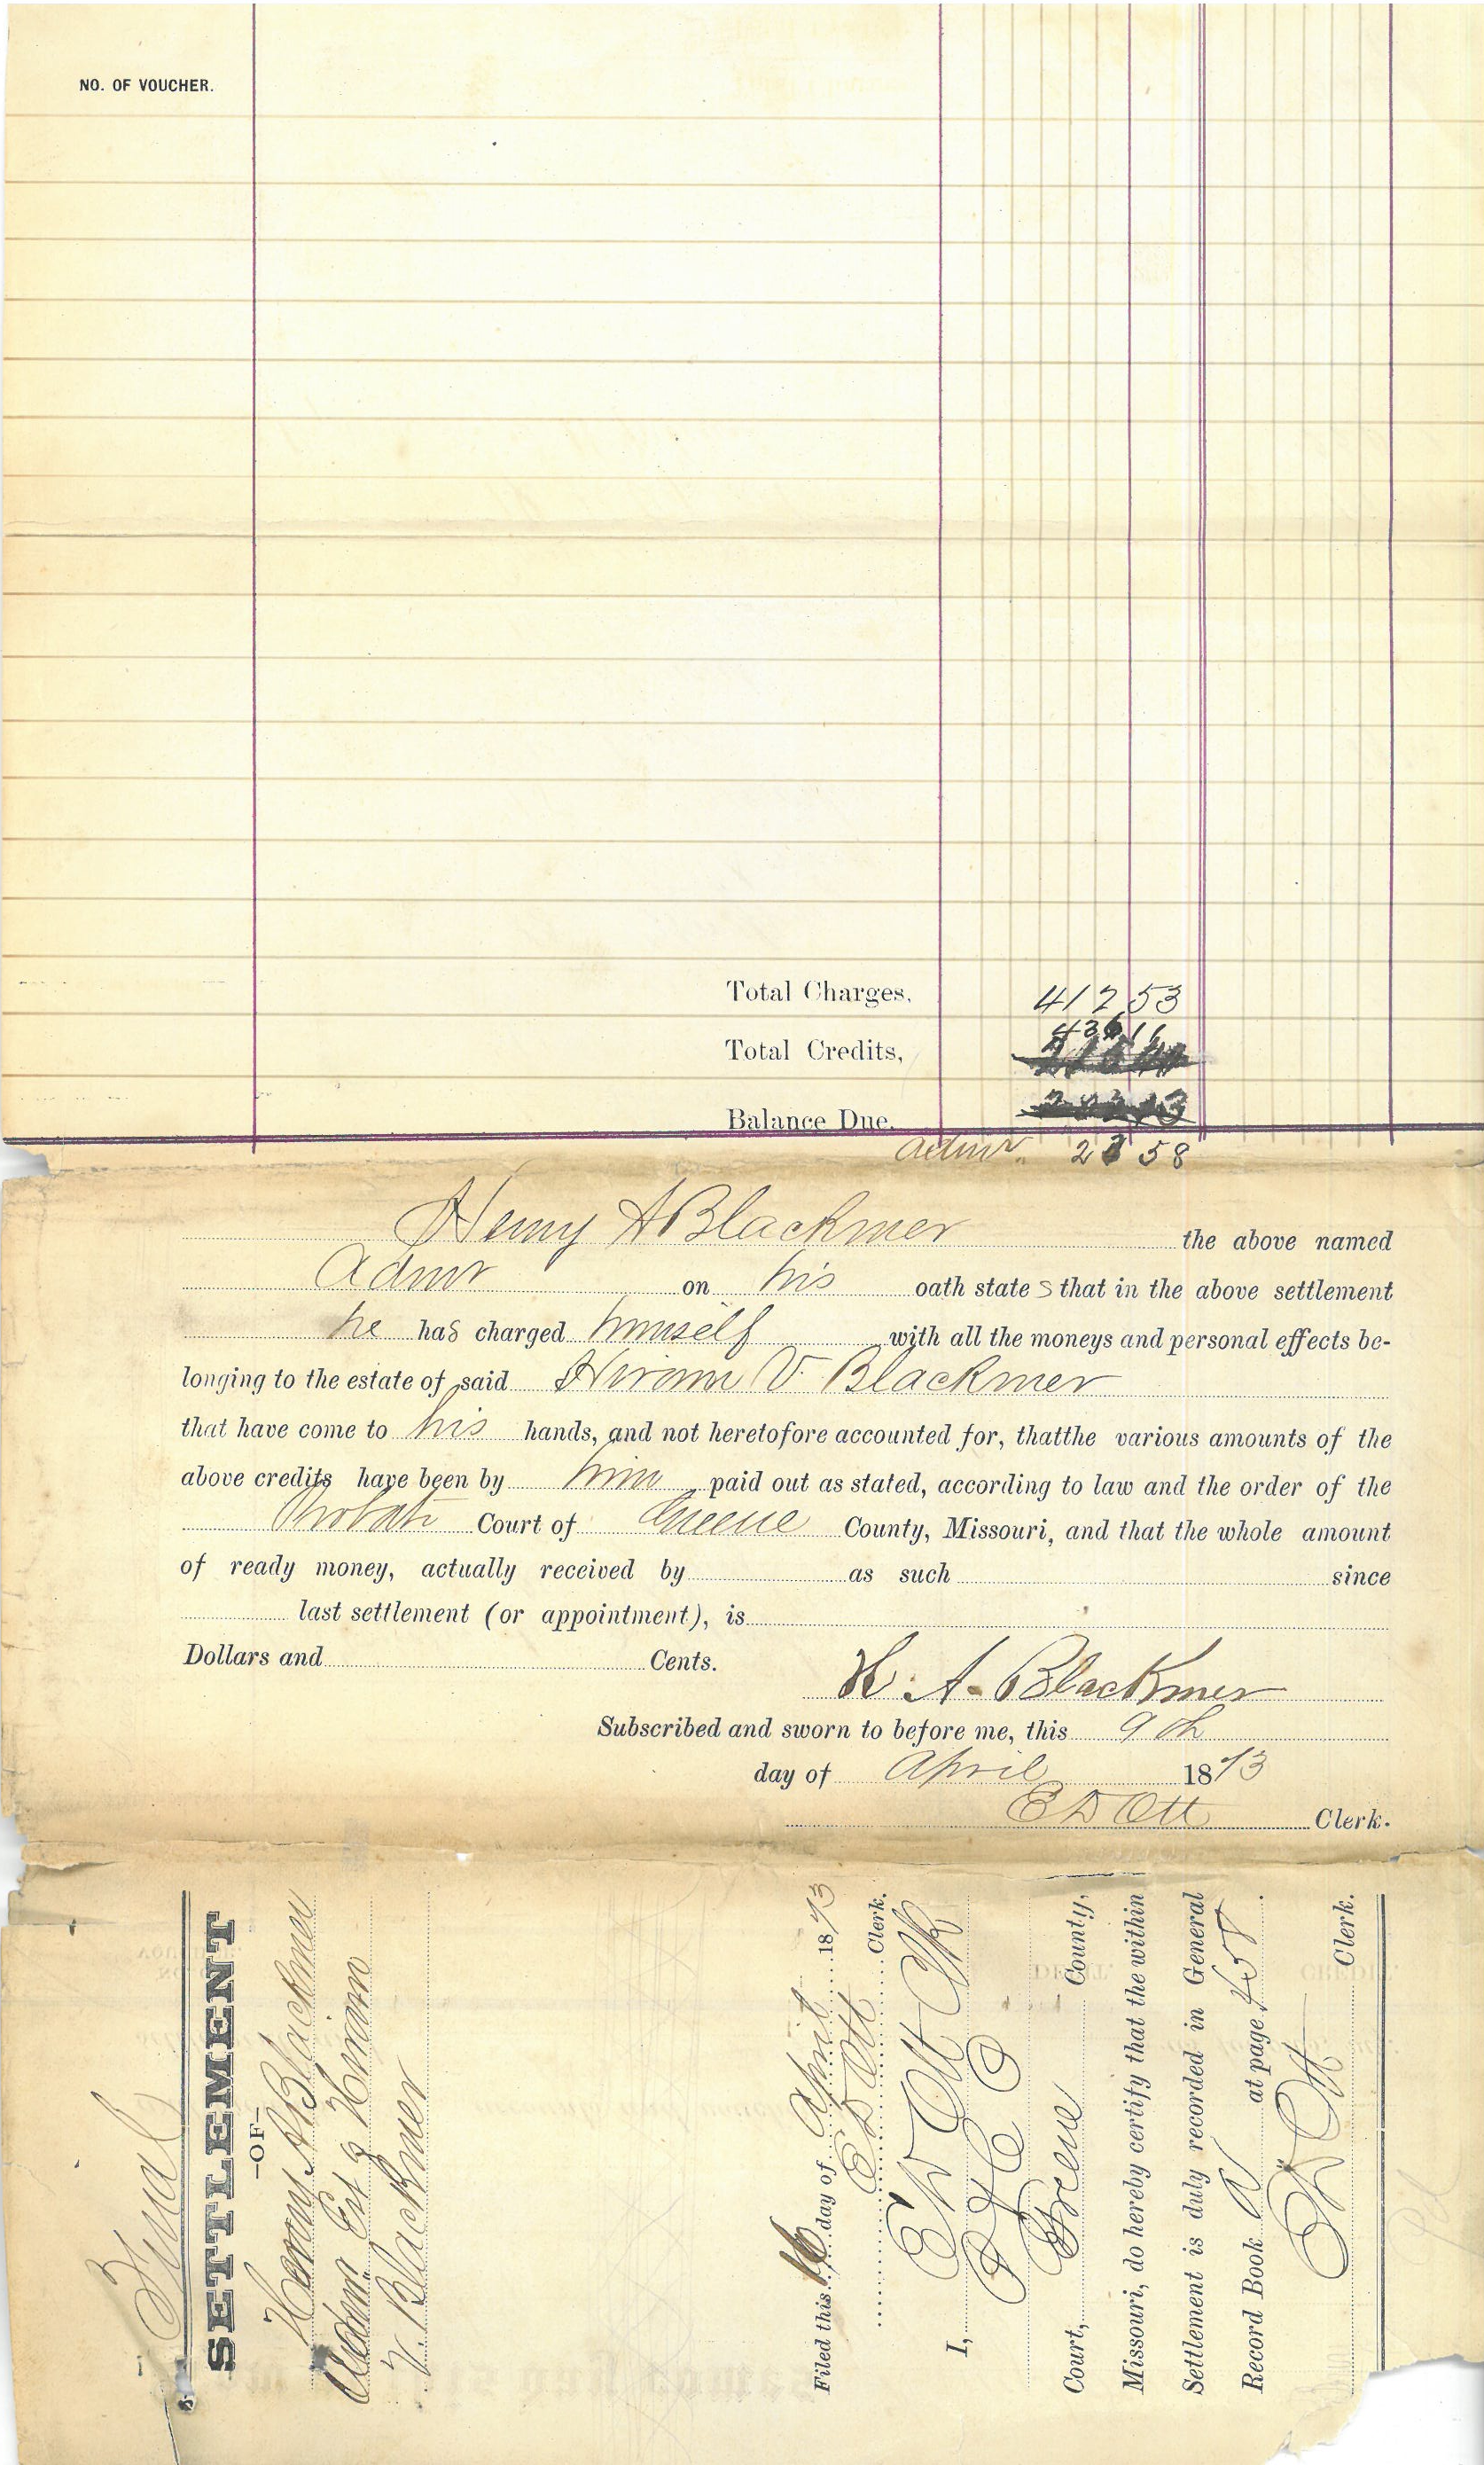 NO. OF VOUCHER.
Total Charges, 412 53
436 11
Total Credits,
Balance Due.
Admr. 23 58
Henny A Blackmer the above named
Admr on his oath state s that in the above settlement
he has charged himself with all the moneys and personal effects be-
longing to the estate of said Hiram V. Blackmer
that have come to his hands, and not heretofore accounted for, thatthe various amounts of the
above credits have been by him paid out as stated, according to law and the order of the
Probate Court of Greene County, Missouri, and that the whole amount
of ready money, actually received by as such since
last settlement (or appointment), is
Dollars and Cents.
H. A. Blackmer
Subscribed and sworn to before me, this 9th
day of April 1873
E D Ott Clerk.
Final
SETTLEMENT
-OF-
Henry A Blackmer
Admr Est of Hiram
V. Blackmer
Filed this 16 day of April 1873
E D Ott Clerk.
I, E D Ott Clk
Court, Greene County,
Missouri, do hereby certify that the within
Settlement is duly recorded in General
Record Book A at page 458.
E D Ott Clerk.